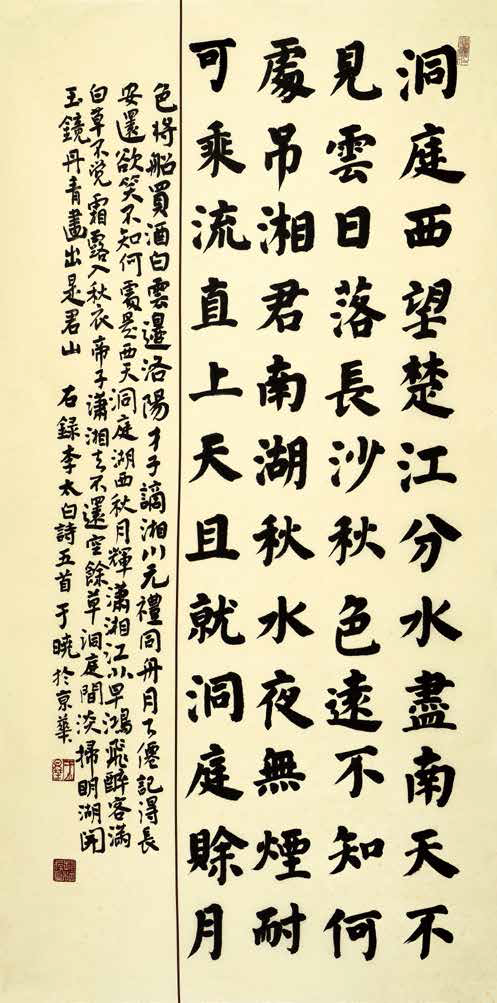 洞庭西望楚江分水盡南天不
見雲日落長沙秋色遠不知何
處吊湘君南湖秋水夜無煙耐
可乘流直上天且就洞庭賒月
色將船買酒白雲邊洛陽才子謫湘川元禮同舟月下僊記得長
安還欲笑不知何處是西天洞庭湖西秋月輝瀟湘江北早鴻飛醉客滿
白草不觉霜露入秋衣帝子瀟湘去不還空餘草洞庭間淡掃明湖開
玉鏡丹青畫出是君山 右録李太白詩五首于曉於京華